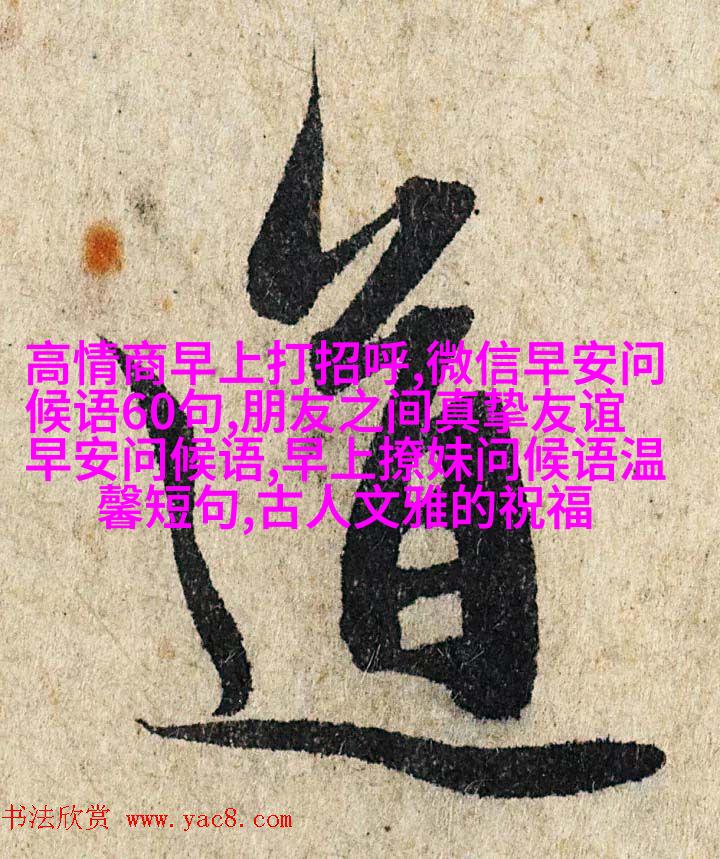 道
高情商早上打招呼,微信早安问
候语60句,朋友之间真挚友谊
早安问候语,早上撩妹问候语温
馨短句,古人文雅的祝福
书法欣赏 www.yac8.com